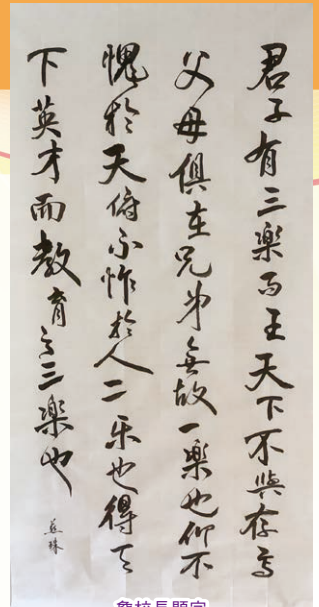 君子有三樂而王天下不與存焉
父母俱在兄弟無故一樂也仰不
愧於天俯不怍於人二乐也得天
下英才而教育之三樂也
詹校長題字